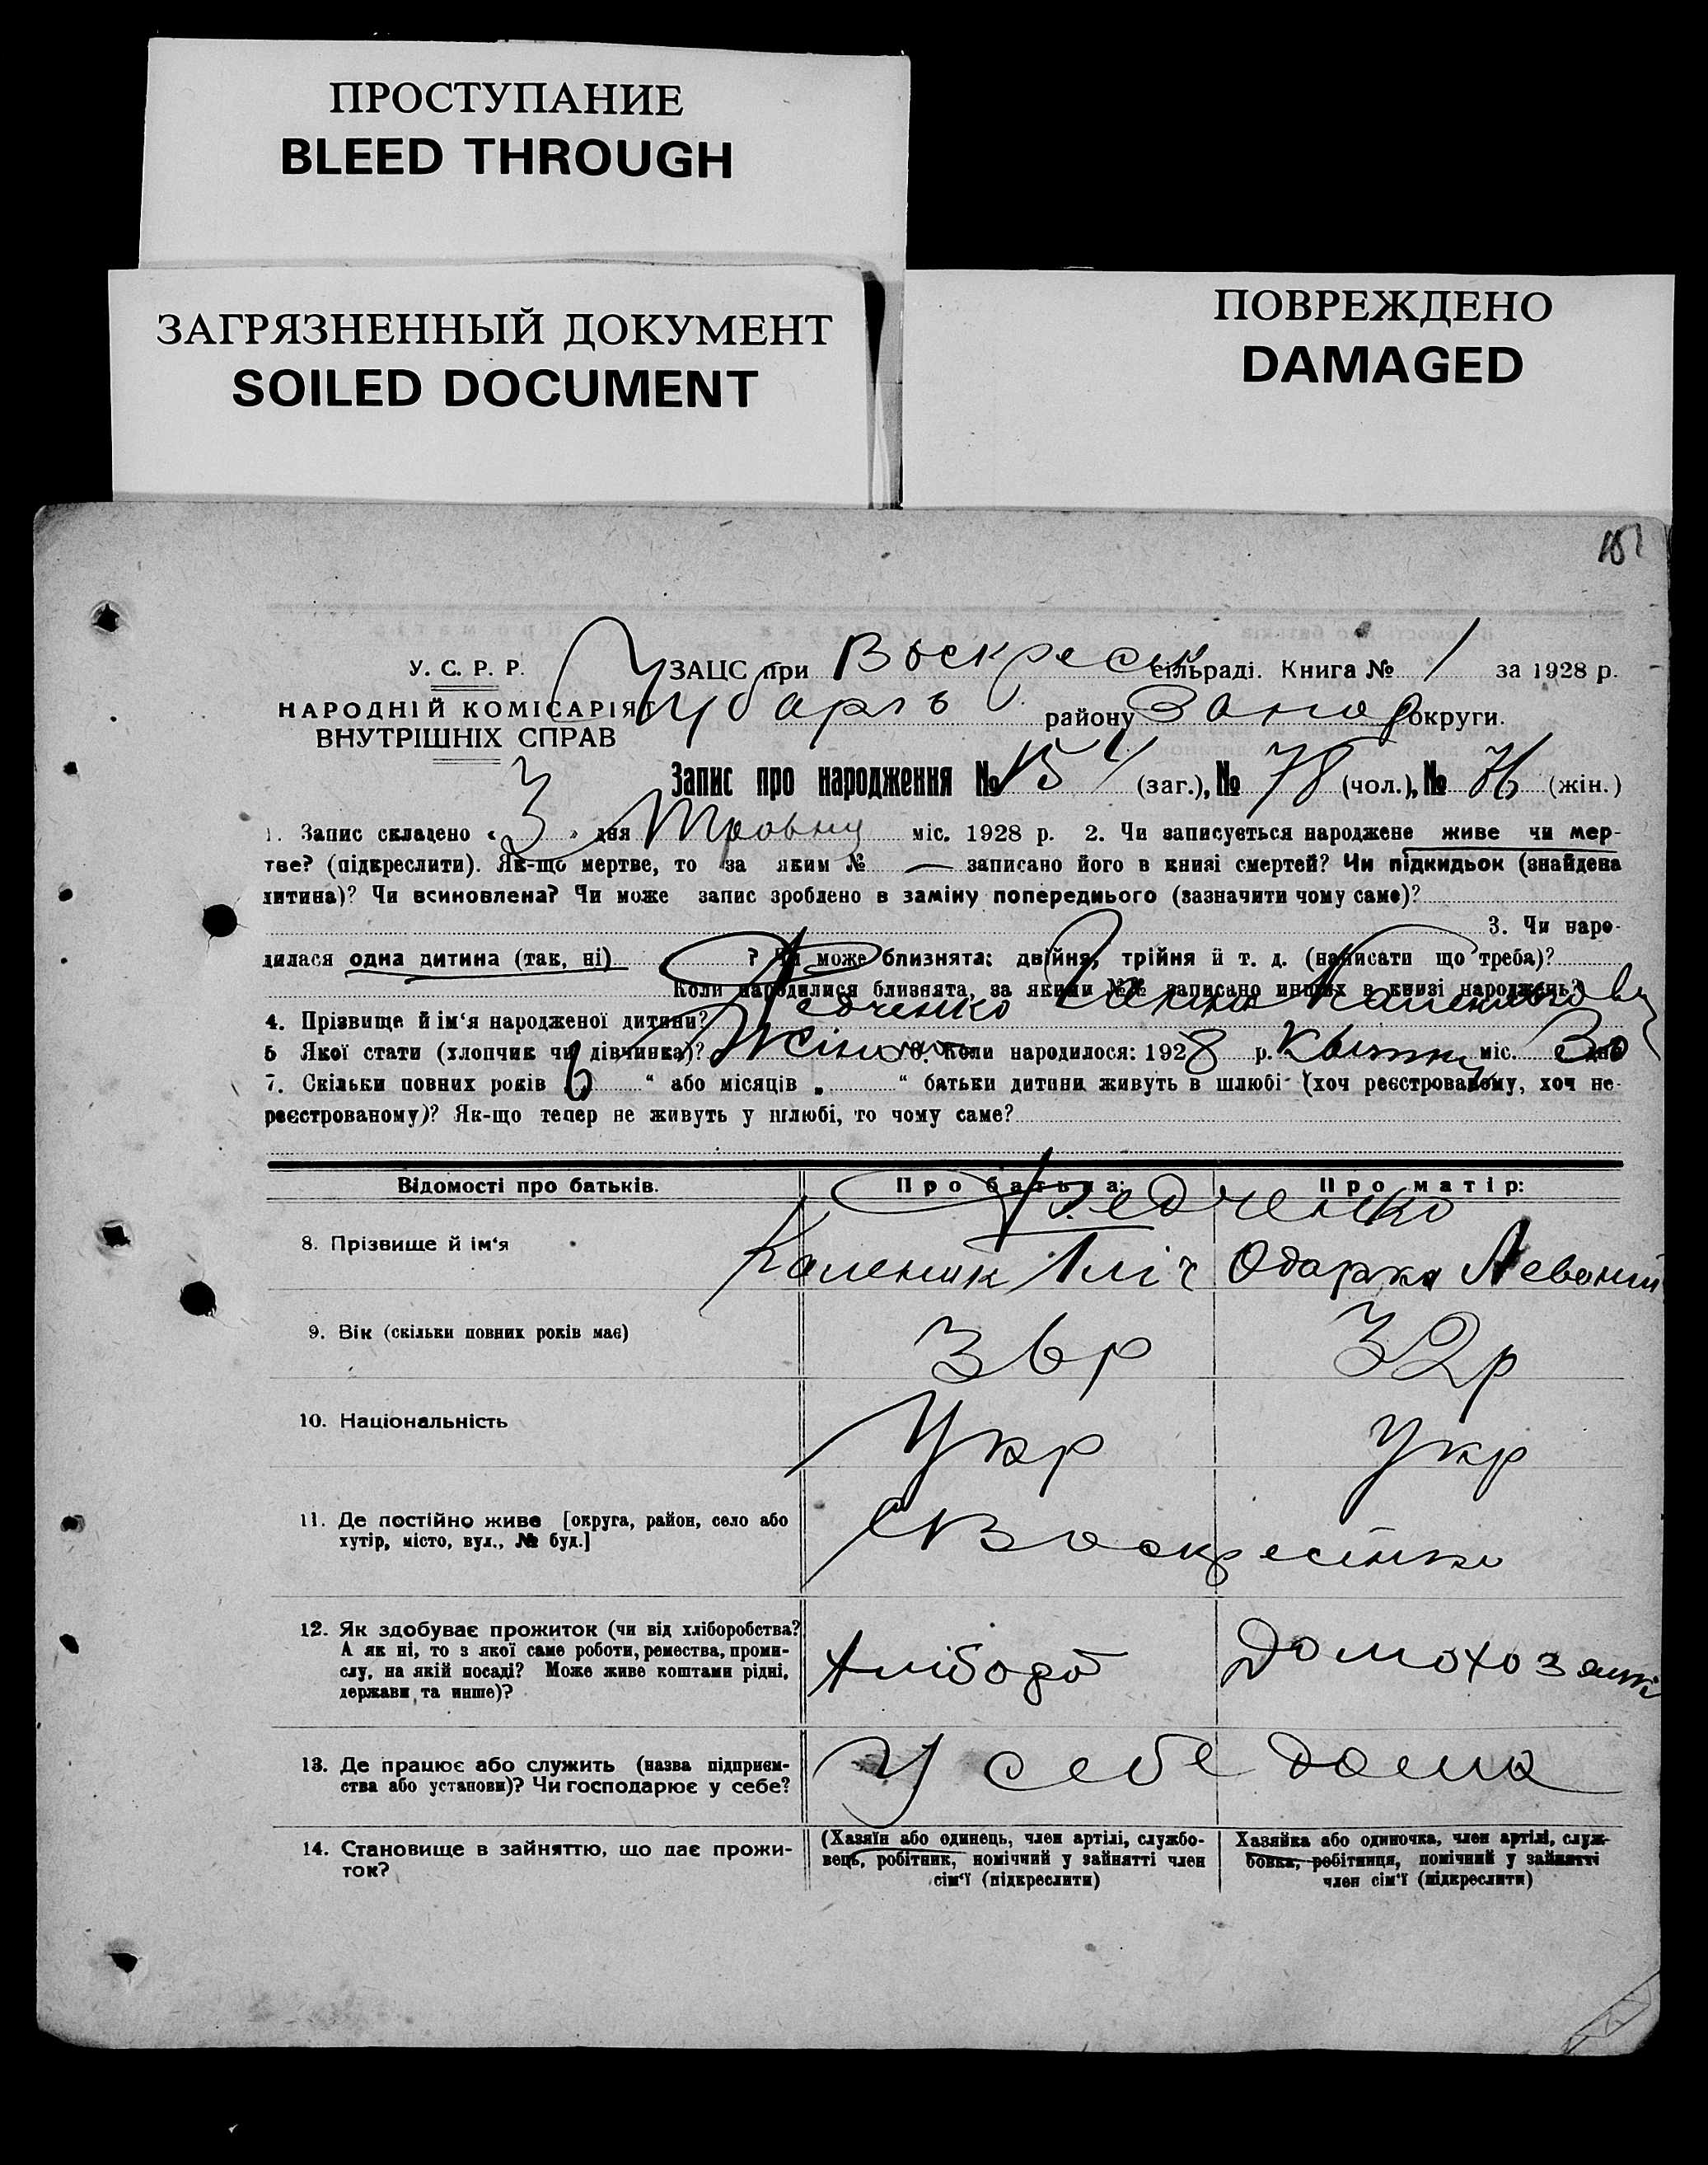 ПРОСТУПАНИЕ
BLEED THROUGH
ЗАГРЯЗНЕННЫЙ ДОКУМЕНТ
SOILED DOCUMENT
ПОВРЕЖДЕНО
DAMAGED
151
У. С. Р. Р.
НАРОДНІЙ КОМІСАРІЯТ
ВНУТРІШНІХ СПРАВ
ЗАЦС при Воскресен сільраді. Книга № 1 за 1928 р.
району Запор округи.
Запис про народження № 154 (заг.), № 78 (чол.), № 76 (жін.)
1. Запис складено « 3 » дня Травня міс. 1928 р. 2. Чи записується народжене живе чи мер-
тве? (підкреслити). Як-що мертве, то за яким № — записано його в книзі смертей? Чи підкидьок (знайдена
дитина)? Чи всиновлена? Чи може запис зроблено в заміну попереднього (зазначити чому саме)?
3. Чи наро-
дилася одна дитина (так, ні) ? Чи може близнята: двійня, трійня й т. д. (написати що треба)?
Коли народилися близнята, за якими №№ записано инших в книзі народжень?
4. Прізвище й ім‘я народженої дитини? Федченко
5 Якої стати (хлопчик чи дівчинка)? Жіноча 6. Коли народилося: 1928 р. Квітня міс. 30 дня
7. Скільки повних років „ 6 “ або місяців „ “ батьки дитини живуть в шлюбі (хоч реєстрованому, хоч не-
реєстрованому)? Як-що тепер не живуть у шлюбі, то чому саме?
Відомості про батьків. Про батька: Про матір:
Федченко
8. Прізвище й ім‘я Каленик Ілліч Одарка
9. Вік (скільки повних років має) 36р 32р
10. Національність Укр Укр
11. Де постійно живе [округа, район, село або
хутір, місто, вул., № буд.]
с Воскресінка
12. Як здобуває прожиток (чи від хліборобства?
А як ні, то з якої саме роботи, ремества, проми-
слу, на якій посаді? Може живе коштами рідні,
держави та инше)?
Хлібороб Домохозяйка
13. Де працює або служить (назва підприєм-
ства або установи)? Чи господарює у себе?
У себе дома
14. Становище в зайняттю, що дає прожи-
ток?
(Хазяїн або одинець, член артілі, службо-
вець, робітник, помічний у зайнятті член
сім‘ї (підкреслити)
Хазяйка або одиночка, член артілі, служ-
бовка, робітниця, помічний у зайнятті
член сім‘ї (підкреслити)